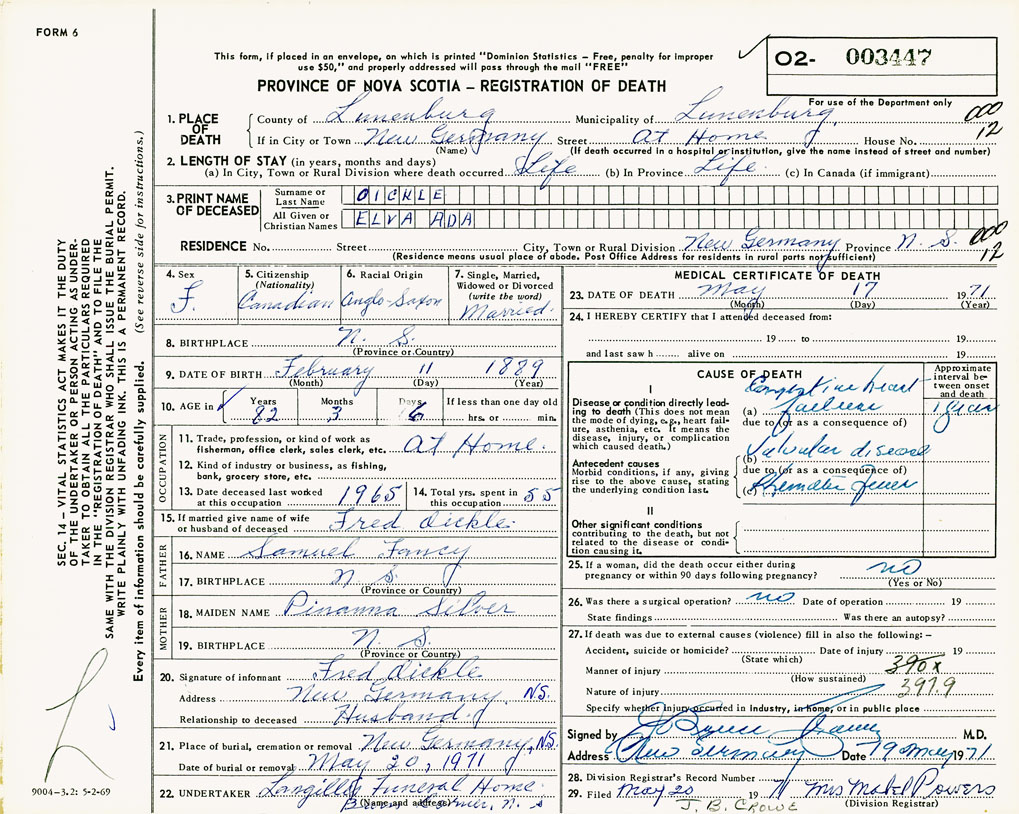 FORM 6
This form, if placed in an envelope, on which is printed "Dominion Statistics – Free, penalty for improper
use $50," and properly addressed will pass through the mail "FREE"
O2- 003447
PROVINCE OF NOVA SCOTIA – REGISTRATION OF DEATH
For use of the Department only
1. PLACE OF DEATH County of Lunenburg Municipality of Lunenburg 000
If in City or Town New Germany Street At Home House No. 12
(Name) (If death occurred in a hospital or institution, give the name instead of street and number)
2. LENGTH OF STAY (in years, months and days)
(a) In City, Town or Rural Division where death occurred Life (b) In Province Life (c) In Canada (if immigrant)
3. PRINT NAME OF DECEASED Surname or Last Name OICKLE
All Given or Christian Names ELVA ADA
RESIDENCE No. Street City, Town or Rural Division New Germany Province N. S. 000
(Residence means usual place of abode. Post Office Address for residents in rural parts not sufficient) 12
4. Sex F.
5. Citizenship (Nationality) Canadian
6. Racial Origin Anglo-Saxon
7. Single, Married, Widowed or Divorced (write the word) Married.
8. BIRTHPLACE N. S.
(Province or Country)
9. DATE OF BIRTH February 11 1889
(Month) (Day) (Year)
10. AGE in Years 82 Months 3 Days 6 If less than one day old hrs. or min.
OCCUPATION
11. Trade, profession, or kind of work as fisherman, office clerk, sales clerk, etc. At Home.
12. Kind of industry or business, as fishing, bank, grocery store, etc.
13. Date deceased last worked at this occupation 1965
14. Total yrs. spent in this occupation 55
15. If married give name of wife or husband of deceased Fred Oickle.
FATHER
16. NAME Samuel Fancy
17. BIRTHPLACE N. S.
(Province or Country)
MOTHER
18. MAIDEN NAME Silver
19. BIRTHPLACE N. S.
(Province or Country)
20. Signature of informant Fred Oickle
Address New Germany N.S.
Relationship to deceased Husband.
21. Place of burial, cremation or removal New Germany, N.S.
Date of burial or removal May 20, 1971
22. UNDERTAKER Funeral Home.
(Name and address) N. S
MEDICAL CERTIFICATE OF DEATH
23. DATE OF DEATH May 17 1971
(Month) (Day) (Year)
24. I HEREBY CERTIFY that I attended deceased from:
19 to 19
and last saw h alive on 19
CAUSE OF DEATH
Approximate interval between onset and death
I
Disease or condition directly leading to death (This does not mean the mode of dying, e.g., heart failure, asthenia, etc. It means the disease, injury, or complication which caused death.)
Congestive heart
(a) failure 1 year
due to (or as a consequence of)
(b) Valvular disease
Antecedent causes
Morbid conditions, if any, giving rise to the above cause, stating the underlying condition last.
due to (or as a consequence of)
(c) Rheumatic fever
II
Other significant conditions contributing to the death, but not related to the disease or condition causing it.
25. If a woman, did the death occur either during pregnancy or within 90 days following pregnancy? no
(Yes or No)
26. Was there a surgical operation? no Date of operation 19
State findings Was there an autopsy?
27. If death was due to external causes (violence) fill in also the following: –
Accident, suicide or homicide? Date of injury 19
(State which)
Manner of injury 390x
(How sustained)
Nature of injury 397.9
Specify whether Injury occurred in industry, in home, or in public place
Signed by M.D.
Address New Germany Date 19 May 1971
28. Division Registrar's Record Number 7
29. Filed May 20 1971 Mrs Mabel Powers
J. B. CROWE (Division Registrar)
SEC. 14 – VITAL STATISTICS ACT MAKES IT THE DUTY
OF THE UNDERTAKER OR PERSON ACTING AS UNDER-
TAKER TO OBTAIN ALL THE PARTICULARS REQUIRED
IN THE "REGISTRATION OF DEATH" AND TO FILE THE
SAME WITH THE DIVISION REGISTRAR WHO SHALL ISSUE THE BURIAL PERMIT.
WRITE PLAINLY WITH UNFADING INK. THIS IS A PERMANENT RECORD.
Every item of information should be carefully supplied. (See reverse side for instructions.)
9004-3.2: 5-2-69